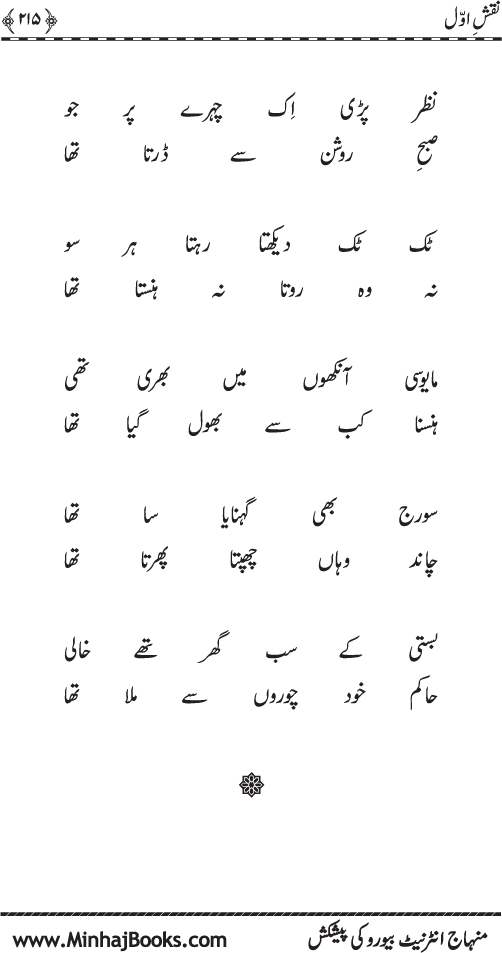 نقشِ اوّل ﴿۲۱۵﴾
نظر پڑی اِک چہرے پر جو
صبحِ روشن سے ڈرتا تھا
ٹک ٹک دیکھتا رہتا ہر سو
نہ وہ روتا نہ ہنستا تھا
مایوسی آنکھوں میں بھری تھی
ہنسنا کب سے بھول گیا تھا
سورج بھی گہنایا سا تھا
چاند وہاں چھپتا پھرتا تھا
بستی کے سب گھر تھے خالی
حاکم خود چوروں سے ملا تھا
منہاج انٹرنیٹ بیورو کی پیشکش www.MinhajBooks.com